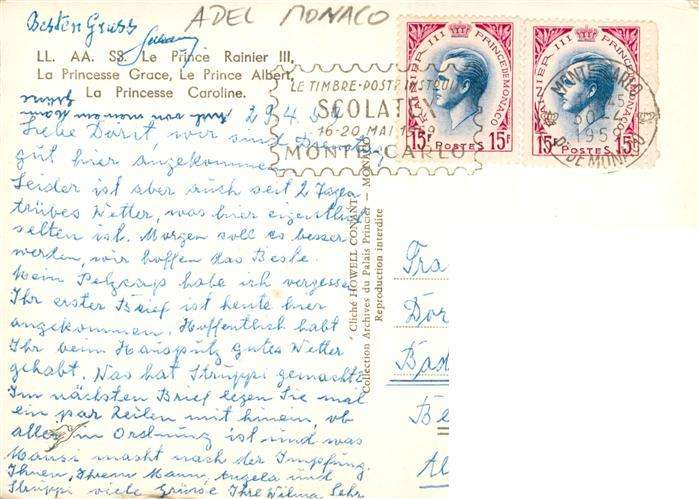 ADEL MONACO
Besten Gruss
LL. AA. SS. Le Prince Rainier III,
La Princesse Grace, Le Prince Albert,
La Princesse Caroline.
29.4.59
Liebe Dorit, wir sind
gut hier angekommen.
Leider ist aber auch seit 2 Tagen
trübes Wetter, was hier eigentlich
selten ist. Morgen soll es besser
werden, wir hoffen das Beste.
Mein Pelzcap habe ich vergessen
Ihr erster Brief ist heute hier
angekommen. Hoffentlich habt
Ihr beim Hausputz gutes Wetter
gehabt. Was hat Struppi gemacht?
Im nächsten Brief legen Sie mal
ein par Zeilen mit hinein, ob
alles in Ordnung ist und was
Mausi macht nach der Impfung.
Ihnen, Ihrem Mann, Angela und
Struppi viele Grüsse Ihre Wilma Sehr
Cliché HOWELL CONANT
Collection Archives du Palais Princier - MONACO
Reproduction interdite
LE TIMBRE-POSTE INSTRUIT
SCOLATEX
16-20 MAI 1959
MONTE-CARLO
RAINIER III PRINCE DE MONACO
15F POSTES 15F
RAINIER III PRINCE DE MONACO
15F POSTES 15F
MONTE-CARLO
1959
PT DE MONACO
Fra
Dor
Bad
Be